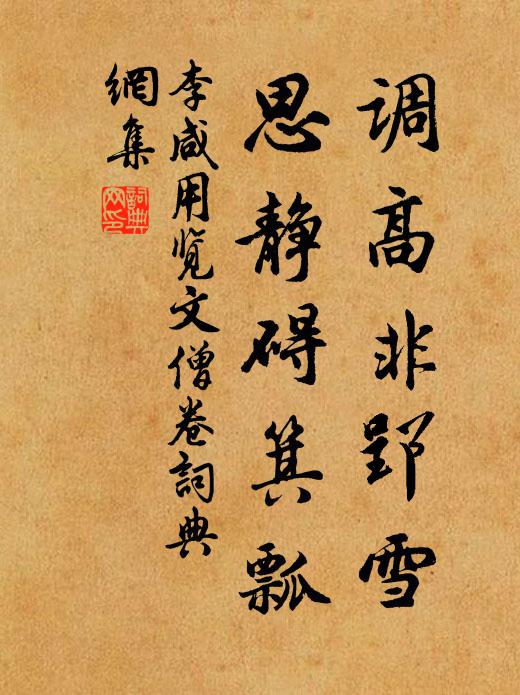 调高非郢雪
思静碍箕瓢
李咸用览文僧卷詞典
網集
詞典
网印